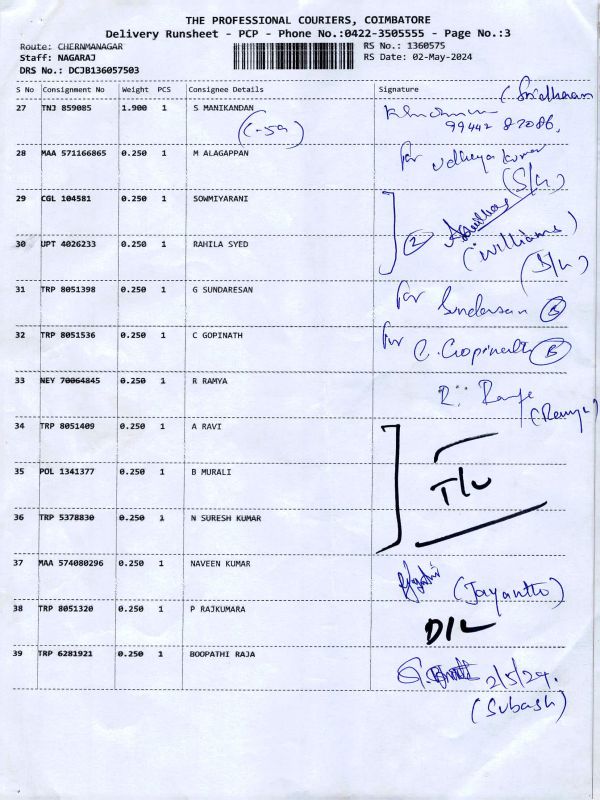 THE PROFESSIONAL COURIERS, COIMBATORE
Delivery Runsheet - PCP - Phone No.:0422-3505555 - Page No.:3
Route: CHERNMANAGAR
Staff: NAGARAJ
DRS No.: DCJB136057503
RS No.: 1360575
RS Date: 02-May-2024
S No Consignment No Weight PCS Consignee Details Signature
(Sridharan
27 TNJ 859085 1.900 1 S MANIKANDAN
99442 87086,
28 MAA 571166865 0.250 1 M ALAGAPPAN for Udhaya kumar
(S/h)
29 CGL 104581 0.250 1 SOWMIYARANI
2
(williams)
30 UPT 4026233 0.250 1 RAHILA SYED
(S/h)
31 TRP 8051398 0.250 1 G SUNDARESAN for Sundarsan B
32 TRP 8051536 0.250 1 C GOPINATH for C. Gopinath B
33 NEY 70064845 0.250 1 R RAMYA
(Ramya)
34 TRP 8051409 0.250 1 A RAVI
35 POL 1341377 0.250 1 B MURALI T/L
36 TRP 5378830 0.250 1 N SURESH KUMAR
37 MAA 574080296 0.250 1 NAVEEN KUMAR (Jayanthi)
38 TRP 8051320 0.250 1 P RAJKUMARA D/L
39 TRP 6281921 0.250 1 BOOPATHI RAJA 2/5/24.
(Subash)